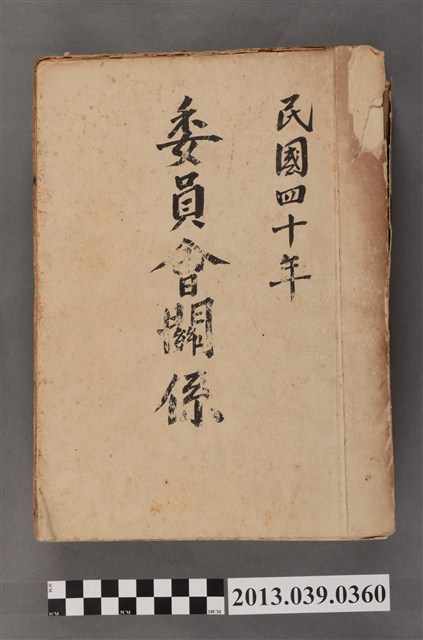 民國四十年
委員會關係
2013.039.0360